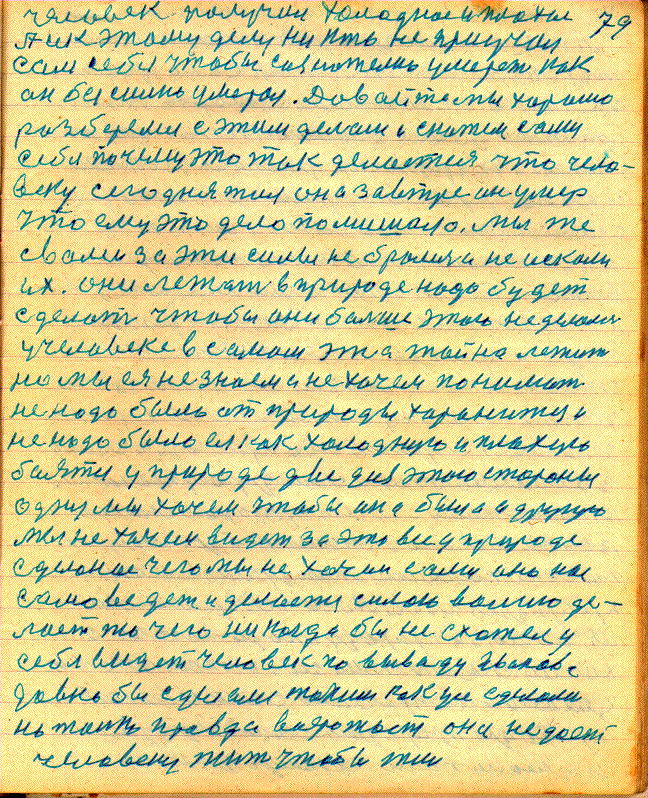 человек получил холодное и плохое 79
А к этому делу ни кто не приучал
сам себя чтобы сознательно умереть как
он бессильно умерал. Довайте мы хорошо
разберемся с этим делом и скажем сами
себе почему это так делается что чело-
веку сегодня жил она завтре он умер
что ему это дело помишало. мы же
свами за эти силы не бролися и не искали
их. они лежат в природе надо будет
сделать чтобы они больше этого не делали
у человеке в самом эта тайна лежит
но мы ея не знаем и не хочем понимать
не надо было от природы харанится и
не надо было ея как холодную и плахую
баятся у природе две для этого стороны
одну мы хочем чтобы она была а другую
мы не хочем видеть за это все у природе
сделоное чего мы не хочем сами оно нас
само ведет и делоется силою волию де-
лает то чего никогда бы не схотел у
себя видет человек по выводу
давно бы сделали таким как уже сделали
но только правда она не дает
человеку жить чтобы жил